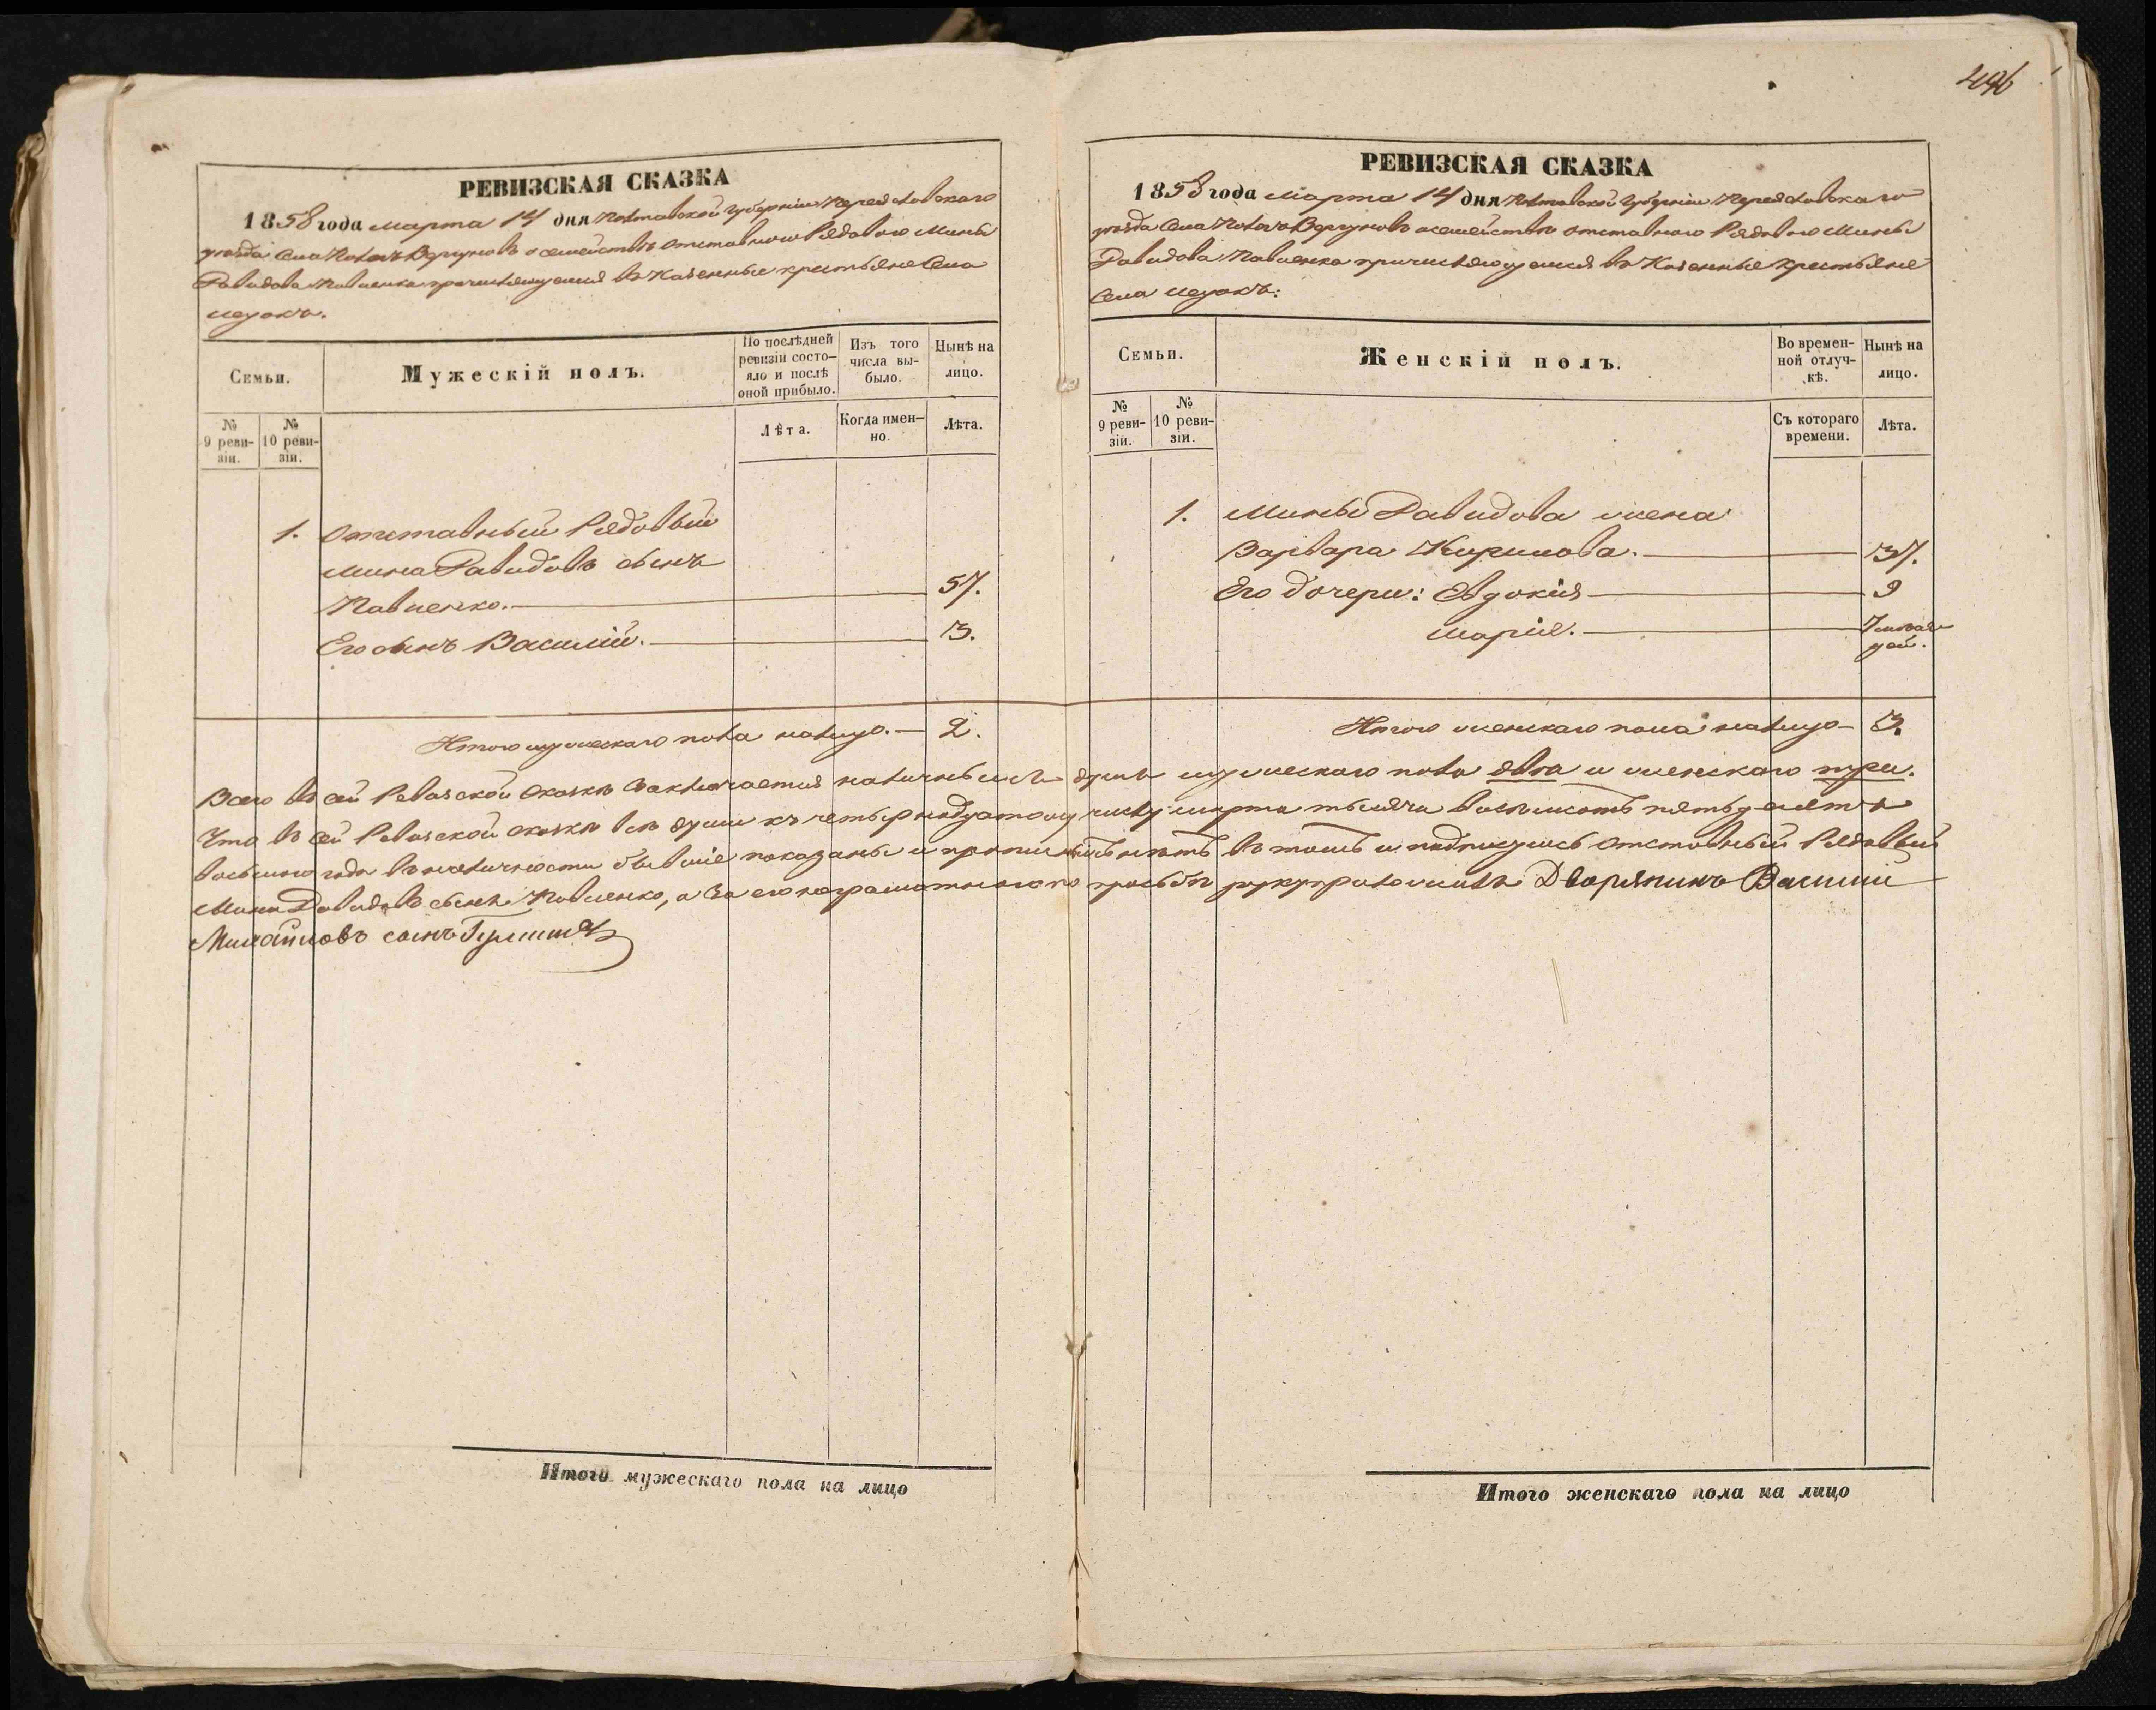 496
РЕВИЗСКАЯ СКАЗКА
1858 года марта 14 дня Полтавской Губерніи Переяславскаго
уѣзда Села Вергуновъ о семействѣ отставного Рядового Мины
Давидова Павленка причисляющемся въ Казенные крестьяне Села
Семьи.
Мужескій полъ.
По послѣдней ревизіи состо-
яло и послѣ оной прибыло.
Изъ того числа вы-
было.
Нынѣ на лицо.
№ 9 реви-
зіи.
№ 10 реви-
зіи.
Лѣта.
Когда имен-
но.
Лѣта.
1. Отставный Рядовый
Мина Давидовъ сынъ
Павленко. 57.
Его сынъ Василій. 3.
Итого мужескаго пола налицо. 2.
РЕВИЗСКАЯ СКАЗКА
1858 года Марта 14 дня Полтавской Губерніи Переяславскаго
уѣзда Села Вергуновъ о семействѣ отставного Рядового Мины
Давидова Павленка причисляющемся въ Казенные крестьяне
Села
Семьи.
Женскій полъ.
Во времен-
ной отлуч-
кѣ.
Нынѣ на лицо.
№ 9 реви-
зіи.
№ 10 реви-
зіи.
Съ котораго времени.
Лѣта.
1. Мины Давидова жена
Варвара Кирилова. 37.
Его дочери: Евдокія 9
Марія. 7
Итого женскаго пола налицо 3.
Всего въ сей Ревизской сказкѣ заключается наличныхъ душъ мужескаго пола два и женскаго три.
Что въ сей Ревизской сказкѣ всѣ души къ четырнадцатому числу марта тысяча восемьсотъ пятьдесятъ
восьмого года въ наличности бывшіе показаны и прописныхъ нѣтъ въ томъ и подписуюсь отставный Рядовый
Мина Давидовъ сынъ Павленко, а за его неграмотного по просьбѣ руку приложилъ Дворянинъ Василій
Михайловъ сынъ
Итого мужескаго пола на лицо
Итого женскаго пола на лицо